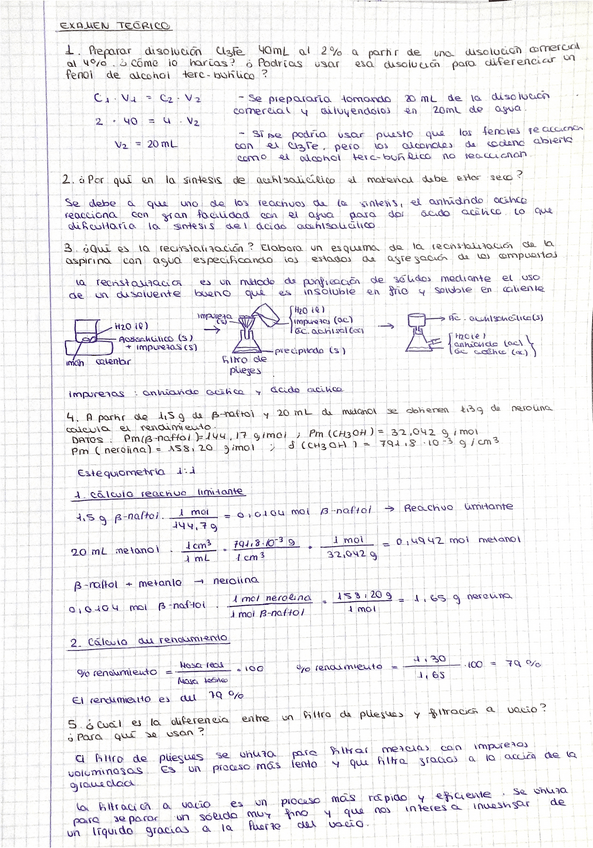 EXAMEN TEÓRICO
1. Preparar disolución Cl3Fe 40mL al 2% a partir de una disolución comercial
al 4%. ¿Cómo lo harías? ¿Podrías usar esa disolución para diferenciar un
fenol de alcohol terc-butílico?
C1 · V1 = C2 · V2
2 · 40 = 4 · V2
V2 = 20 mL
- Se prepararía tomando 20 mL de la disolución
comercial y diluyéndolos en 20mL de agua.
- Si me podría usar puesto que los fenoles reaccionan
con el Cl3Fe, pero los alcoholes de cadena abierta
como el alcohol terc-butílico no reaccionan.
2. ¿Por qué en la síntesis de acetilsalicílico el material debe estar seco?
Se debe a que uno de los reactivos de la síntesis, el anhídrido acético
reacciona con gran facilidad con el agua para dar ácido acético lo que
dificultaría la síntesis del ácido acetilsalicílico.
3. ¿Qué es la recristalización? Elabora un esquema de la recristalización de la
aspirina con agua especificando los estados de agregación de los compuestos
la recristalización es un método de purificación de sólidos mediante el uso
de un disolvente bueno que es insoluble en frío y soluble en caliente
H2O (l)
(s)
+ impurezas (s)
imán calentar
impureza
(s)
H2O (l)
impurezas (ac)
ác. acetilsal (ac)
precipitado (s)
filtro de
pliegues
ác. acetilsalicílico (s)
H2O (l)
anhídrido (ac)
ác acético (ac)
Impurezas: anhídrido acético y ácido acético
4. A partir de 1,5 g de β-naftol y 20 mL de metanol se obtienen 1,3 g de nerolina
calcula el rendimiento.
DATOS: Pm(β-naftol) = 144,17 g/mol ; Pm (CH3OH) = 32,042 g/mol
Pm (nerolina) = 158,20 g/mol ; δ (CH3OH) = 791,8 · 10⁻³ g/cm³
Estequiometría 1:1
1. Cálculo reactivo limitante
1,5 g β-naftol · 1 mol / 144,7 g = 0,0104 mol β-naftol → Reactivo limitante
20 mL metanol · 1 cm³ / 1 mL · 791,8·10⁻³ g / 1 cm³ · 1 mol / 32,042 g = 0,4942 mol metanol
β-naftol + metanlo → nerolina
0,0104 mol β-naftol · 1 mol nerolina / 1 mol β-naftol = 158,20 g / 1 mol = 1,65 g nerolina
2. Cálculo del rendimiento
% rendimiento = Masa real / Masa teórica · 100 % rendimiento = 1,30 / 1,65 · 100 = 79 %
El rendimiento es del 79 %
5. ¿Cuál es la diferencia entre un filtro de pliegues y filtración a vacío?
¿Para qué se usan?
El filtro de pliegues se utiliza para filtrar mezclas con impurezas
voluminosas. Es un proceso más lento y que filtra gracias a la acción de la
gravedad.
la filtración a vacío es un proceso más rápido y eficiente. Se utiliza
para separar un sólido muy fino y que nos interesa investigar de
un líquido gracias a la fuerte del vacío.